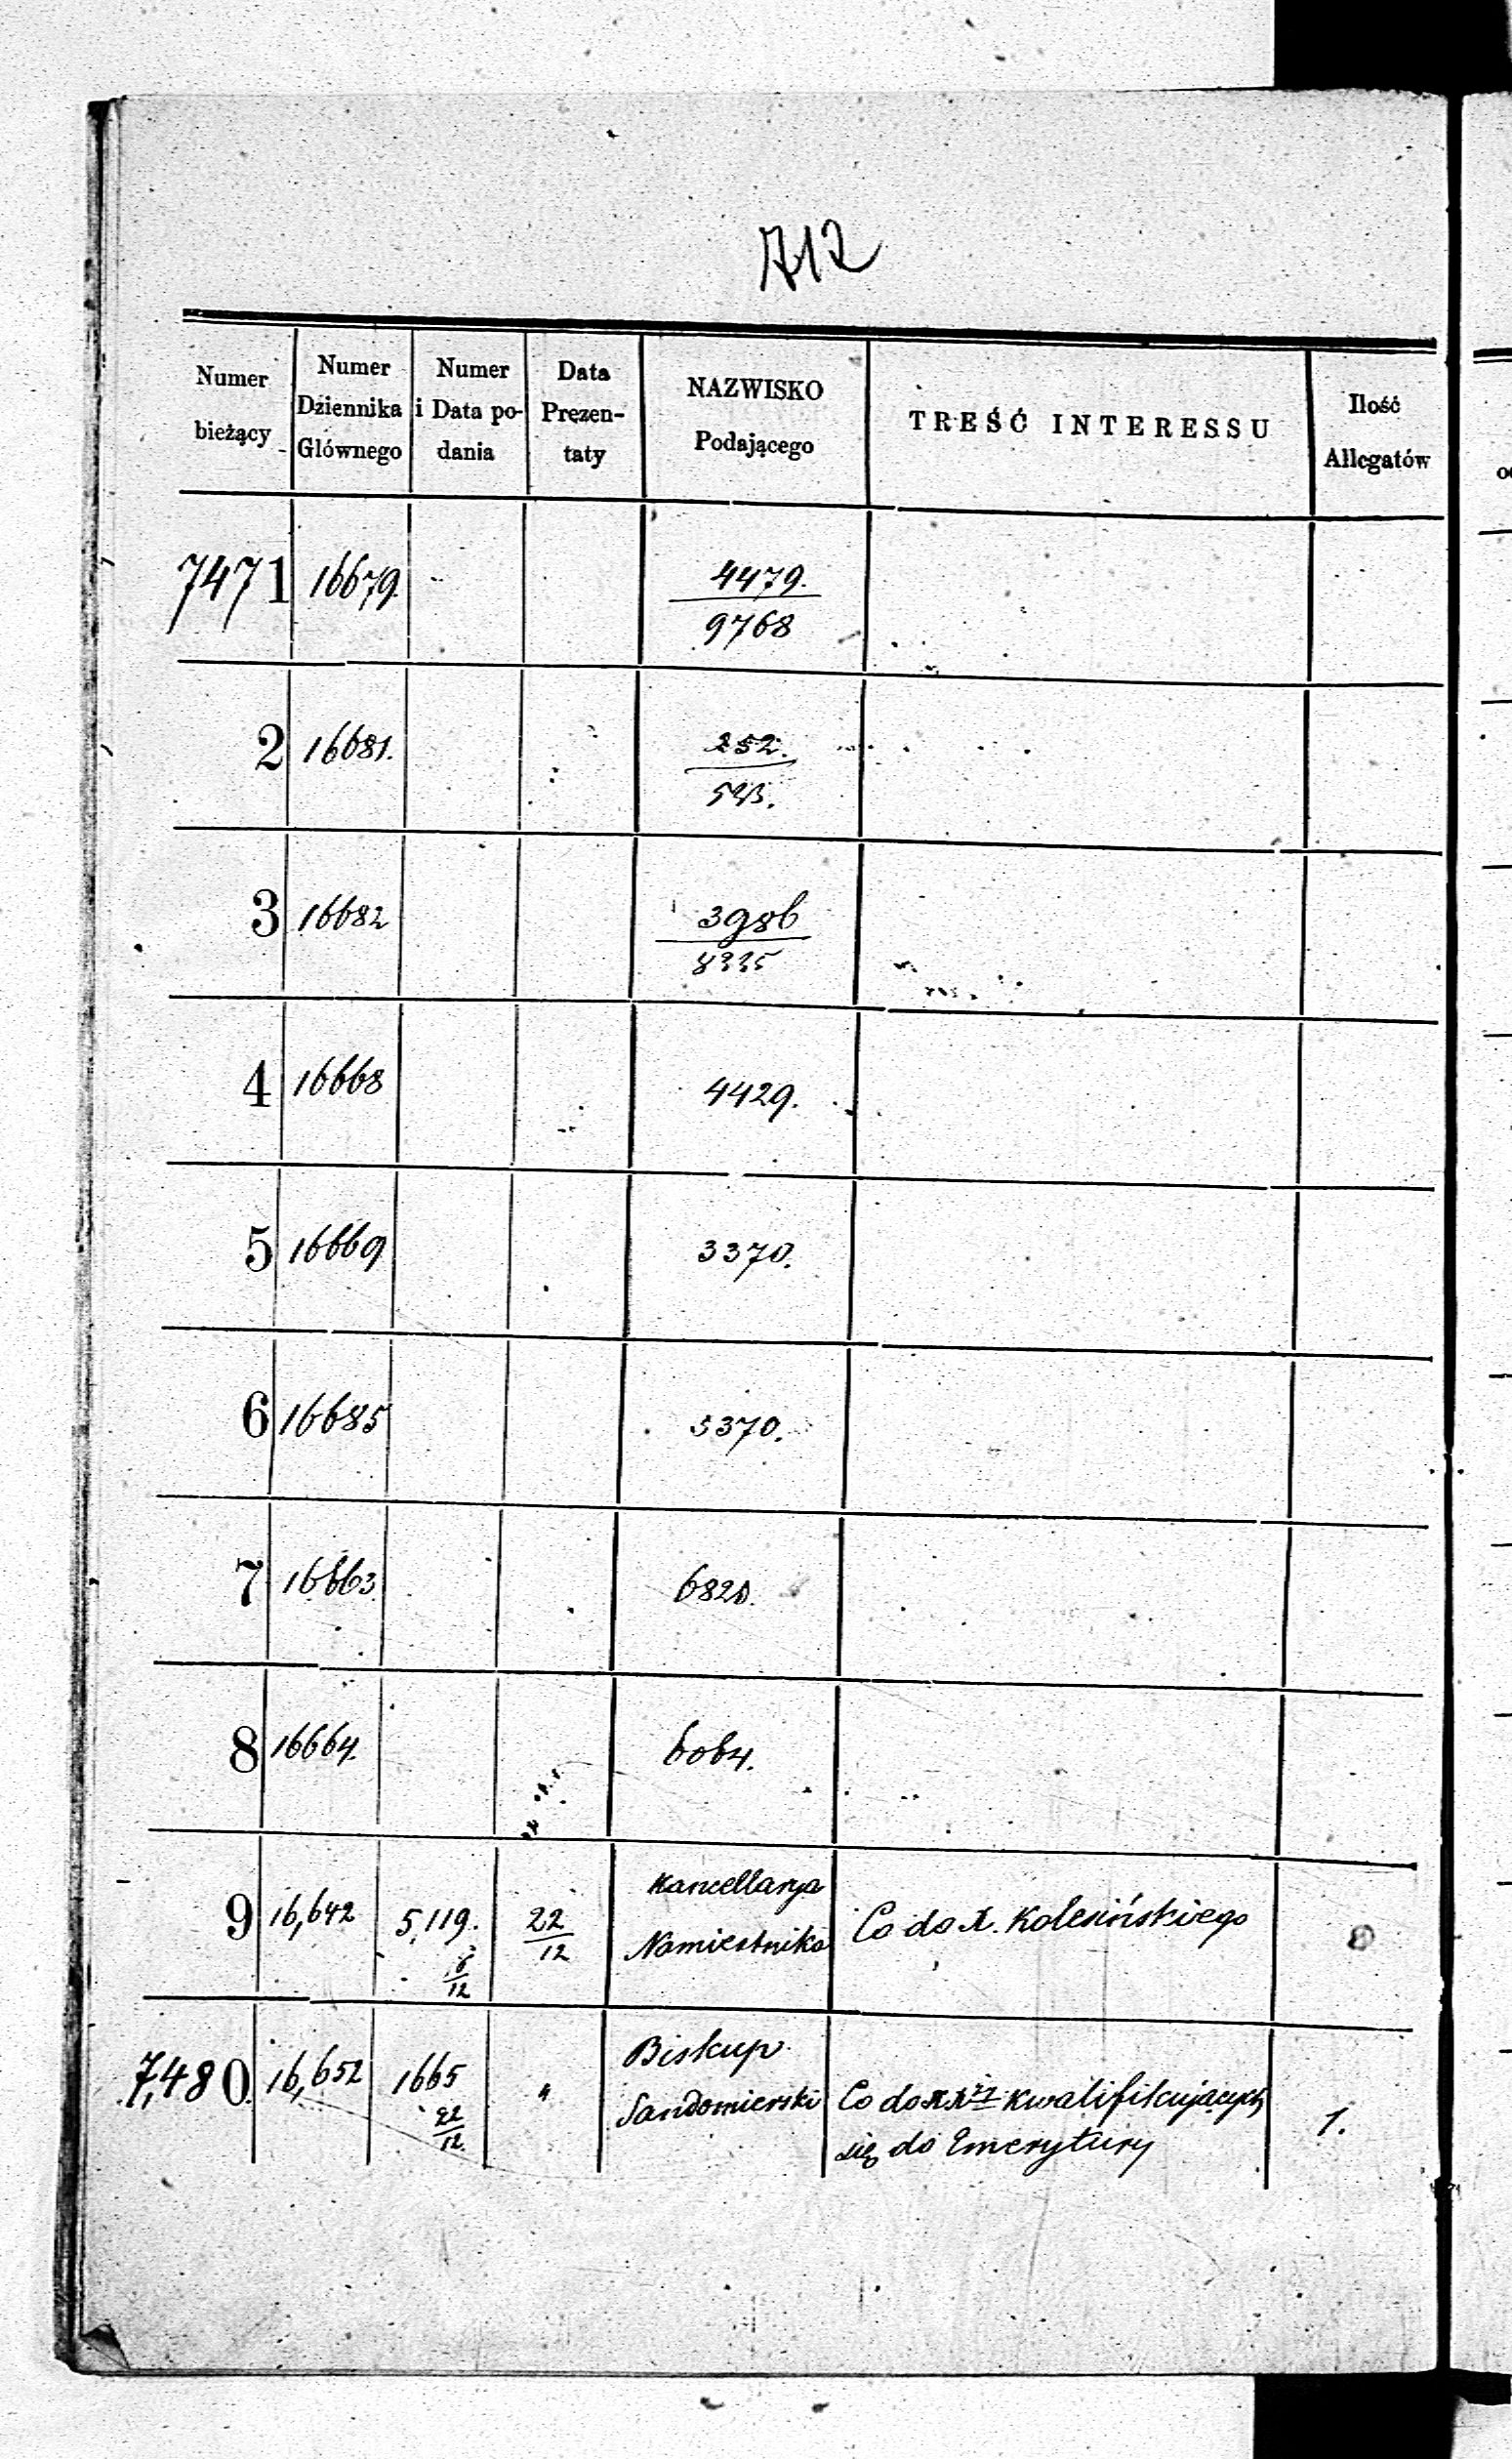 712
Numer bieżący
Numer Dziennika Głównego
Numer i Data podania
Data Prezentaty
NAZWISKO Podającego
TREŚĆ INTERESSU
Ilość Allegatów
7471 16679. 4479.
9768
2 16681. 252.
3 16682 3986
8335
4 16668 4429.
5 16669 3370.
6 16685 3370.
7 16663. 6820.
8 16664. 6064.
9 16,642 5,119. 6/12 22/12 Kancellarya Namiestnika Co do X. Kolesińskiego
7,480 16,652 1665 22/12 " Biskup Sandomierski Co do XX kwalifikujących
się do Emerytury 1.